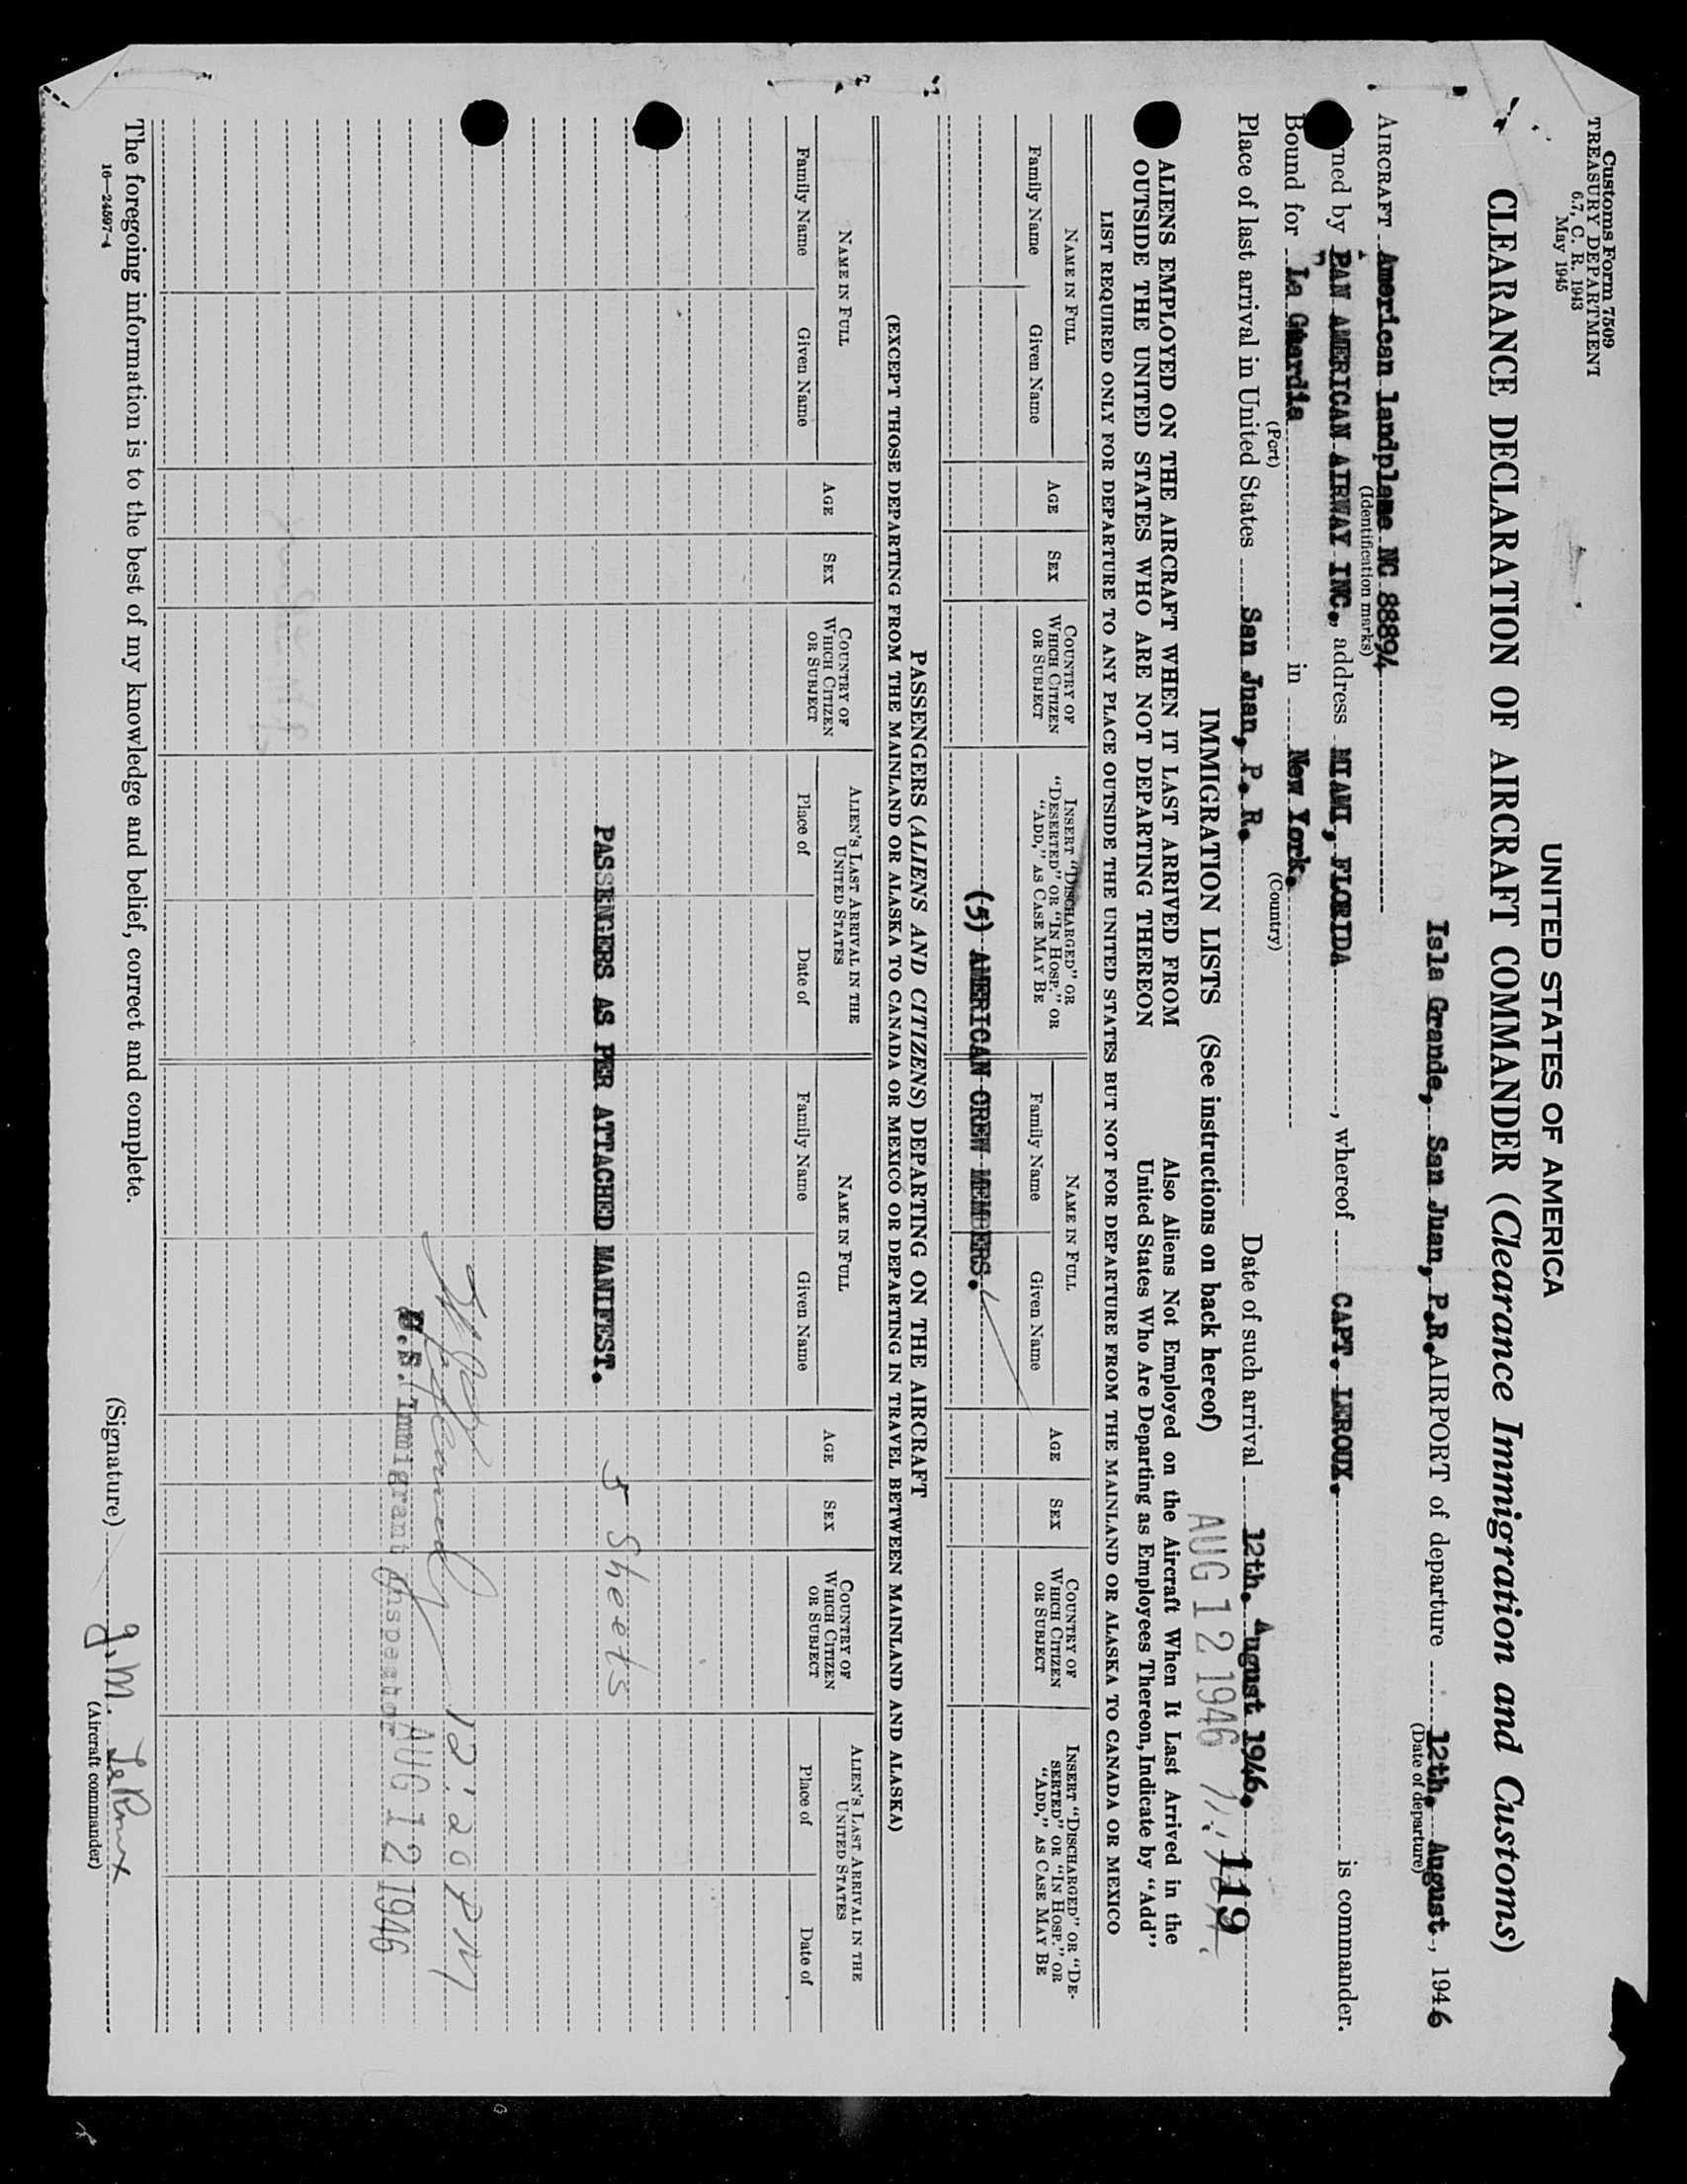 Customs Form 7509
TREASURY DEPARTMENT
6.7, C. R. 1943
May 1945
UNITED STATES OF AMERICA
CLEARANCE DECLARATION OF AIRCRAFT COMMANDER (Clearance Immigration and Customs)
Isla Grande, San Juan, P.R. AIRPORT of departure 12th. August, 1946
(Date of departure)
AIRCRAFT American landplane NC 88894
(Identification marks)
ned by PAN AMERICAN AIRWAY INC., address MIAMI, FLORIDA, whereof CAPT. LEROUX. is commander.
Bound for La Guardia in New York.
(Port) (Country)
Place of last arrival in United States San Juan, P. R. Date of such arrival 12th. August 1946.
119
IMMIGRATION LISTS (See instructions on back hereof) AUG 12 1946
ALIENS EMPLOYED ON THE AIRCRAFT WHEN IT LAST ARRIVED FROM OUTSIDE THE UNITED STATES WHO ARE NOT DEPARTING THEREON
Also Aliens Not Employed on the Aircraft When It Last Arrived in the United States Who Are Departing as Employees Thereon, Indicate by "Add"
LIST REQUIRED ONLY FOR DEPARTURE TO ANY PLACE OUTSIDE THE UNITED STATES BUT NOT FOR DEPARTURE FROM THE MAINLAND OR ALASKA TO CANADA OR MEXICO
NAME IN FULL AGE SEX COUNTRY OF WHICH CITIZEN OR SUBJECT INSERT "DISCHARGED" OR "DESERTED" OR "IN HOSP." OR "ADD," AS CASE MAY BE NAME IN FULL AGE SEX COUNTRY OF WHICH CITIZEN OR SUBJECT INSERT "DISCHARGED" OR "DESERTED" OR "IN HOSP." OR "ADD," AS CASE MAY BE
Family Name Given Name Family Name Given Name
(5) AMERICAN CREW MEMBERS.
PASSENGERS (ALIENS AND CITIZENS) DEPARTING ON THE AIRCRAFT
(EXCEPT THOSE DEPARTING FROM THE MAINLAND OR ALASKA TO CANADA OR MEXICO OR DEPARTING IN TRAVEL BETWEEN MAINLAND AND ALASKA)
NAME IN FULL AGE SEX COUNTRY OF WHICH CITIZEN OR SUBJECT ALIEN'S LAST ARRIVAL IN THE UNITED STATES NAME IN FULL AGE SEX COUNTRY OF WHICH CITIZEN OR SUBJECT ALIEN'S LAST ARRIVAL IN THE UNITED STATES
Family Name Given Name Place of Date of Family Name Given Name Place of Date of
PASSENGERS AS PER ATTACHED MANIFEST. 5 Sheets
12:20 PM
U.S. Immigrant Inspector AUG 12 1946
The foregoing information is to the best of my knowledge and belief, correct and complete.
(Signature) J. M. LeRoux
(Aircraft commander)
16—24597-4